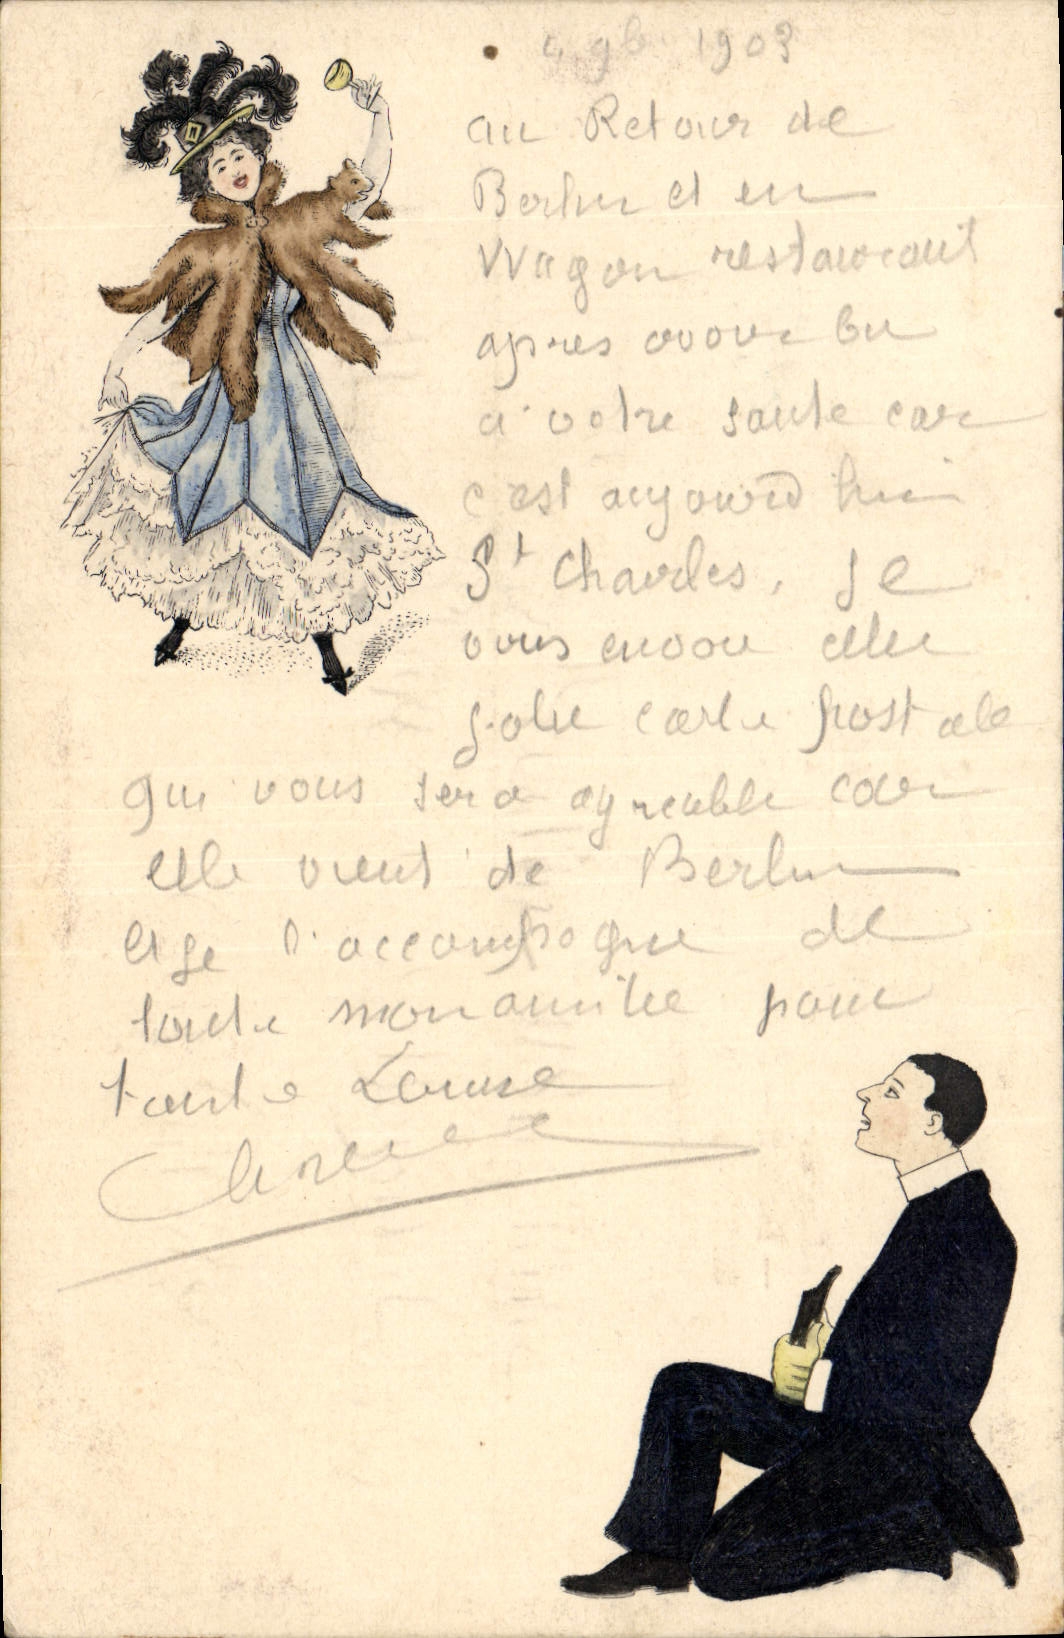 4 9b 1903
au Retour de
Berlin et en
Wagon restaurant
apres avoir bu
a votre sante car
c'est aujourd'hui
St Charles, Je
vous envoie cette
Jolie carte postale
qui vous sera agreable car
elle vient de Berlin
et je l'accompagne de
toute mon amitie pour
tante Louise